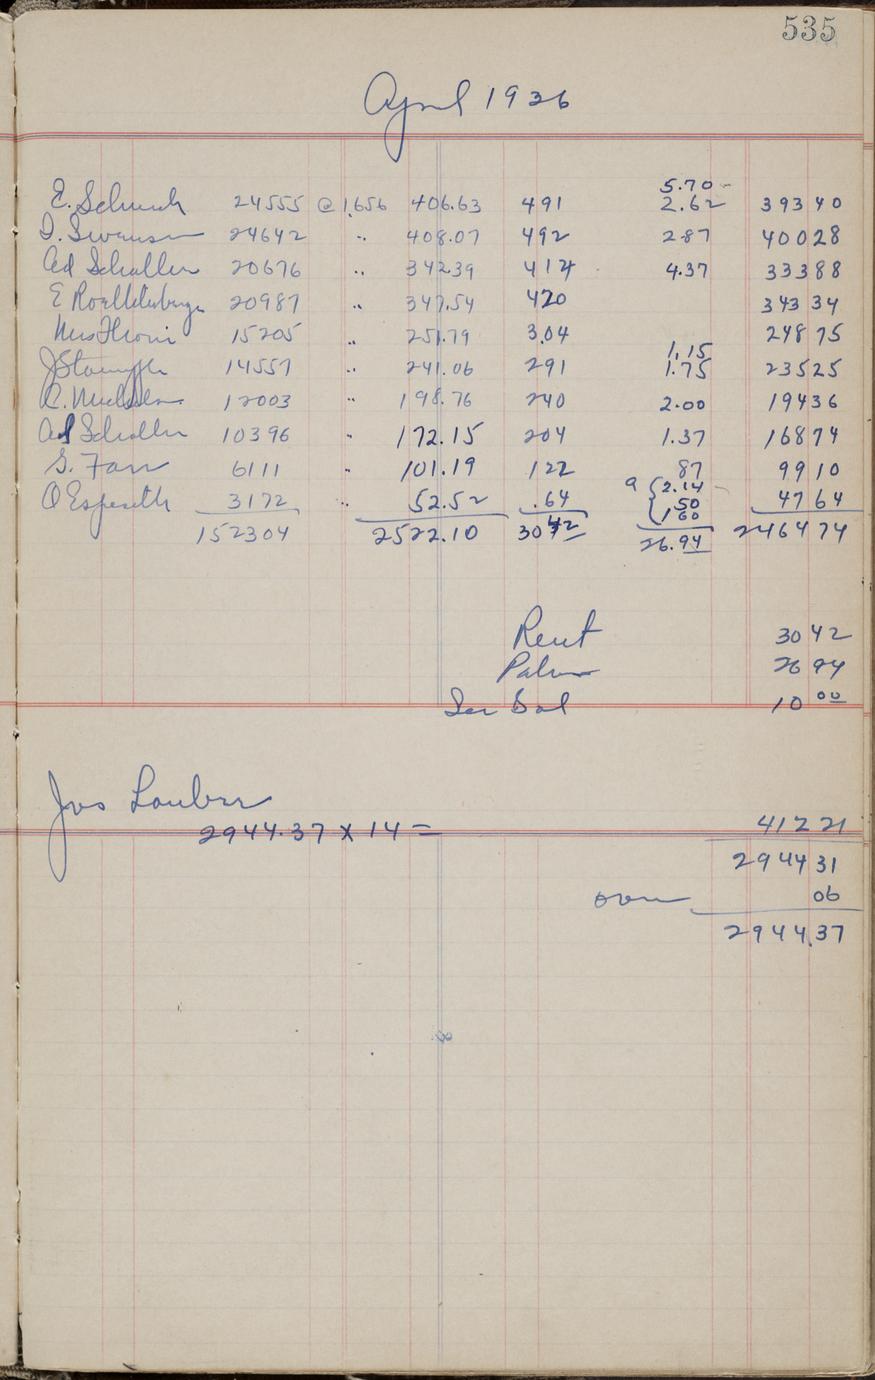 535
April 1936
5.70 -
E. Schurch 24555 @ 1.656 406.63 491 2.62 393 40
D. Swanson 24642 " 408.07 492 2.87 400 28
Ad Schaller 20676 " 342.39 414 4.37 333 88
E 20987 " 347.54 420 343 34
Mrs 15205 " 251.79 3.04 248 75
1.15
J Stauffer 14557 " 241.06 291 1.75 235 25
12003 " 198.76 240 2.00 194 36
Ad Schaller 10396 " 172.15 204 1.37 168 74
S. Farr 6111 " 101.19 122 87 99 10
9 { 2.14 -
O Espeseth 3172 " 52.52 .64 50 47 64
1 60
152304 2522.10 30 42 26.94 2464 74
Rent 30 42
26 94
Bal 10 00
Jos Lauber
2944.37 X 14 = 412 21
2944 31
over 06
2944.37